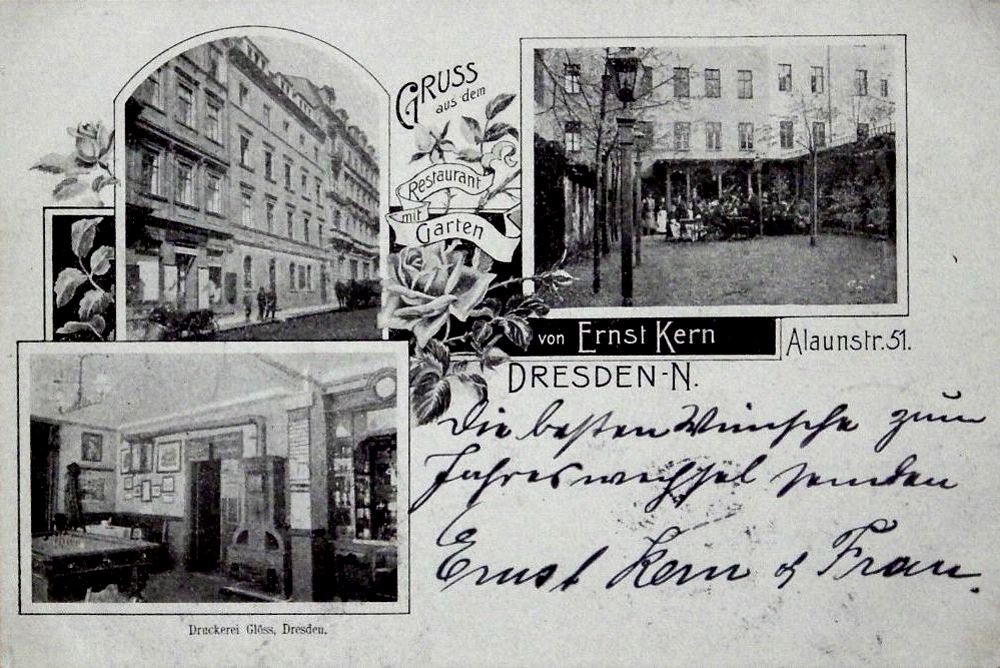 GRUSS
aus dem
Restaurant
mit
Garten
von Ernst Kern
Alaunstr. 51.
DRESDEN-N.
Die besten Wünsche zum
Jahreswechsel senden
Ernst Kern & Frau.
Druckerei Glöss, Dresden.